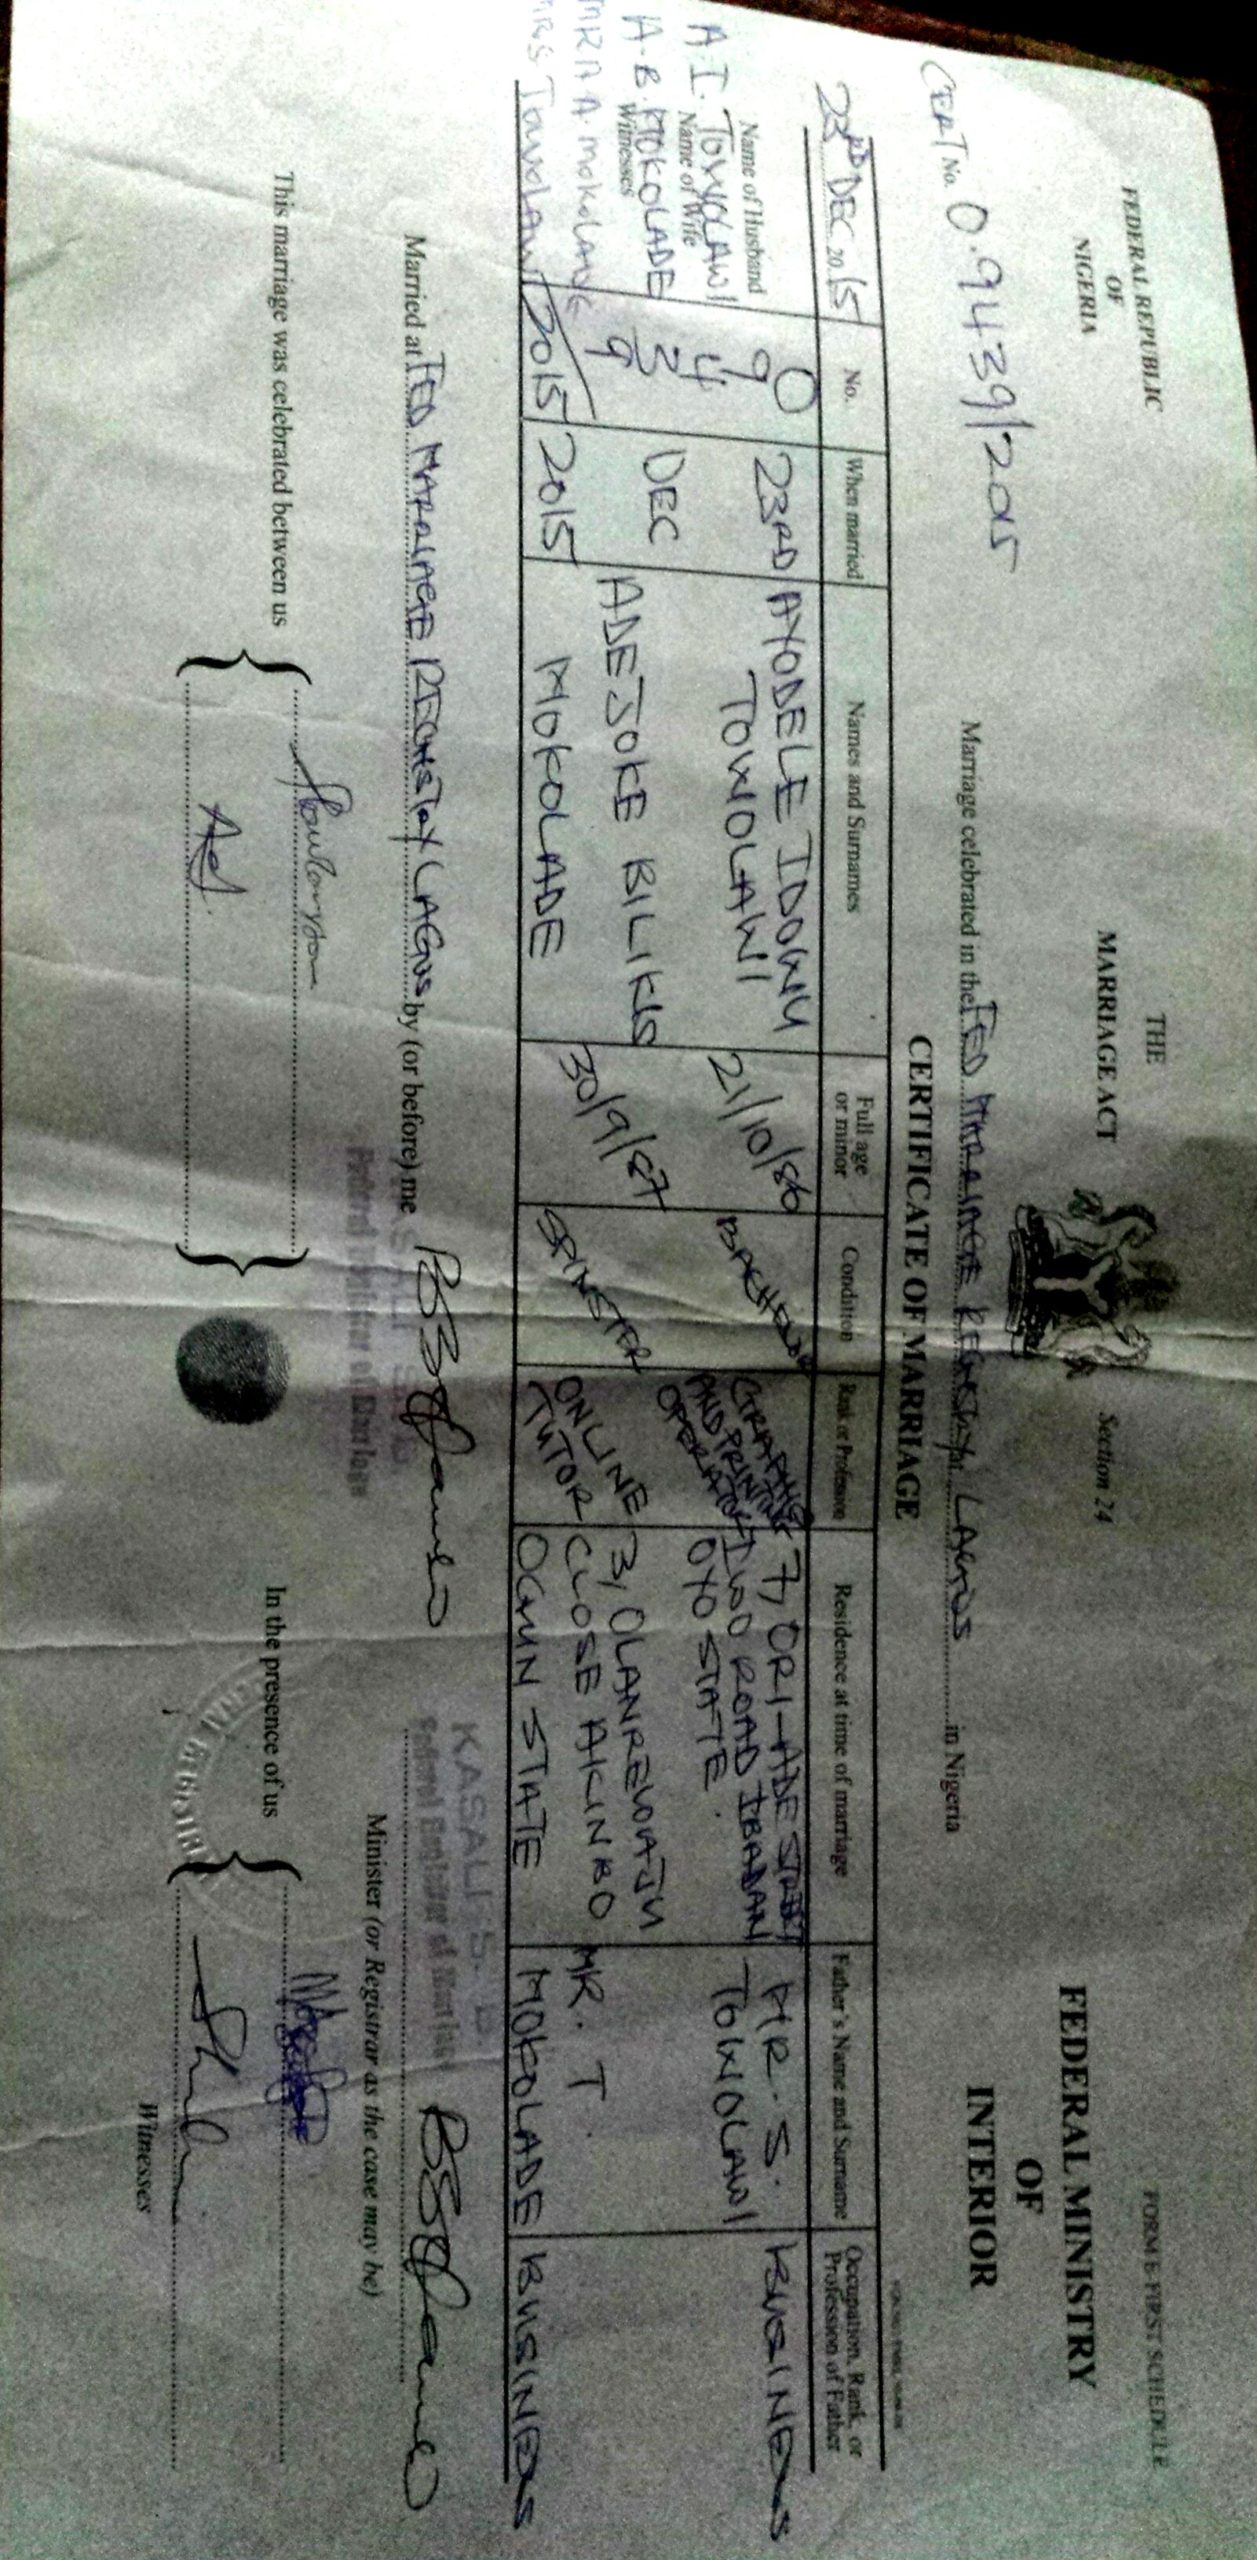 FORM E-FIRST SCHEDULE
FEDERAL REPUBLIC
OF
NIGERIA
THE
MARRIAGE ACT
Section 24
FEDERAL MINISTRY
OF
INTERIOR
CERT No. 0.9439/2015
Marriage celebrated in the FED MARRIAGE REGISTRY LAGOS in Nigeria
CERTIFICATE OF MARRIAGE
23RD DEC 2015
No.
When married
Names and Surnames
Full age or minor
Condition
Rank or Profession
Residence at time of marriage
Father's Name and Surname
Occupation, Rank, or Profession of Father
Name of Husband
A. I. TOWOLAWI
Name of Wife
A. B. MOKOLADE
Witnesses
MR A A. MOKOLADE
MRS TOWOLAWI
0
9
4
3
9
2015
23RD
DEC
2015
AYODELE IDOWU
TOWOLAWI
21/10/86
BACHELOR
GRAPHIC
AND PRINTING
OPERATOR
7, ORI-ADE STREET
IWO ROAD IBADAN
OYO STATE.
MR. S.
TOWOLAWI
BUSINESS
ADEJOKE BILIKIS
MOKOLADE
30/9/87
SPINSTER
ONLINE
TUTOR
3, OLANREWAJU
CLOSE AKINBO
OGUN STATE
MR. T.
MOKOLADE
BUSINESS
Married at FED MARRIAGE REGISTRY LAGOS by (or before) me
KASALI S. B
Federal Registrar of Marriage
Federal Registrar of Marriage
Minister (or Registrar as the case may be)
This marriage was celebrated between us
In the presence of us
Witnesses